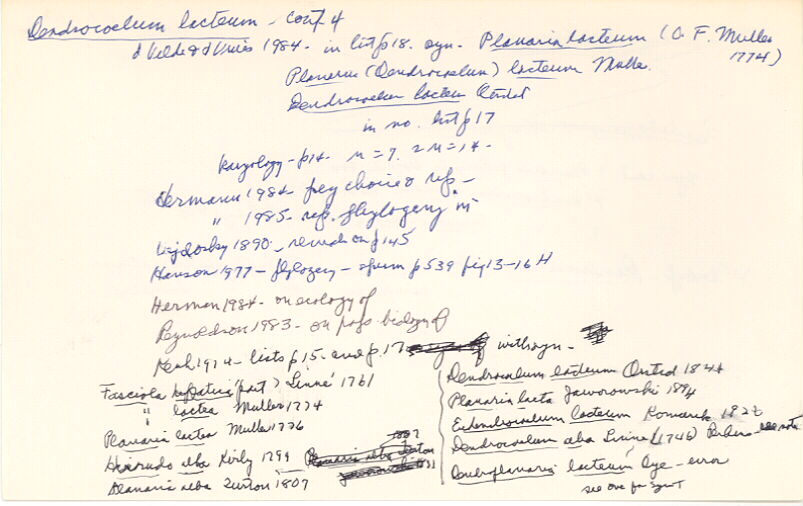 Dendrocoelum lacteum - Conf 4
d Vilde & d Vries 1984 - in list p 18. syn. Planaria lacteum (O. F. Muller 1774)
Planaria (Dendrocoelum) lacteum Mulle.
Dendrocoelum lacteum Örsted
in no. list p 17
karyology - p 14 - n = 7. 2n = 14 -
Hermann 1984 - prey choice & rep -
" 1985 - rep. phylogeny in
Vejdovsky 1890 - remarks on p 145
Hanson 1977 - phylogeny - sperm p 539 fig 13-16 H
Herman 1984 - on ecology of
Reynoldson 1983 - on pop. biology of
1914 - lists p 15 - and p 17 with syn -
Fasciola hepatica (part) Linné 1761
" lactea Muller 1774
Planaria lactea Muller 1776
Hirudo alba Kirby 1794
Planaria alba 1807
Dendrocoelum lacteum Örsted 1844
Planaria lacta Jaworowski 1894
lacteum Komarek
Dendrocoelum alba Linne (1746) - see note
lacteum - error
see one for